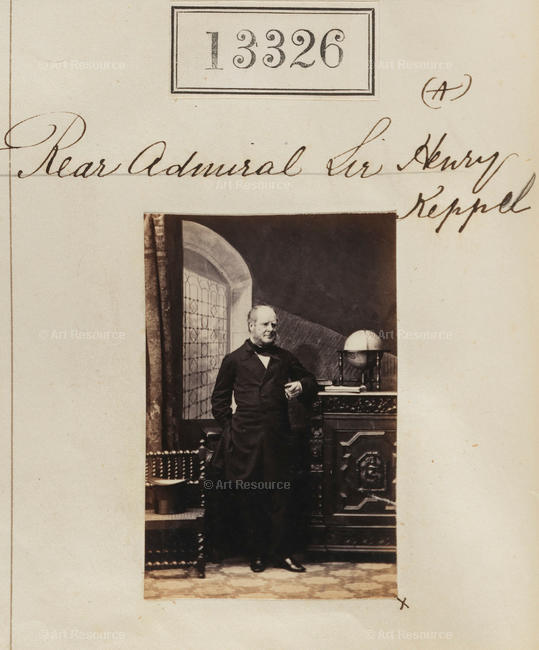 13326
(A)
Rear Admiral Sir Henry
Keppel
x
© Art Resource
© Art Resource
© Art Resource
© Art Resource
© Art Resource
© Art Resource
© Art Resource
© Art Resource
© Art Resource